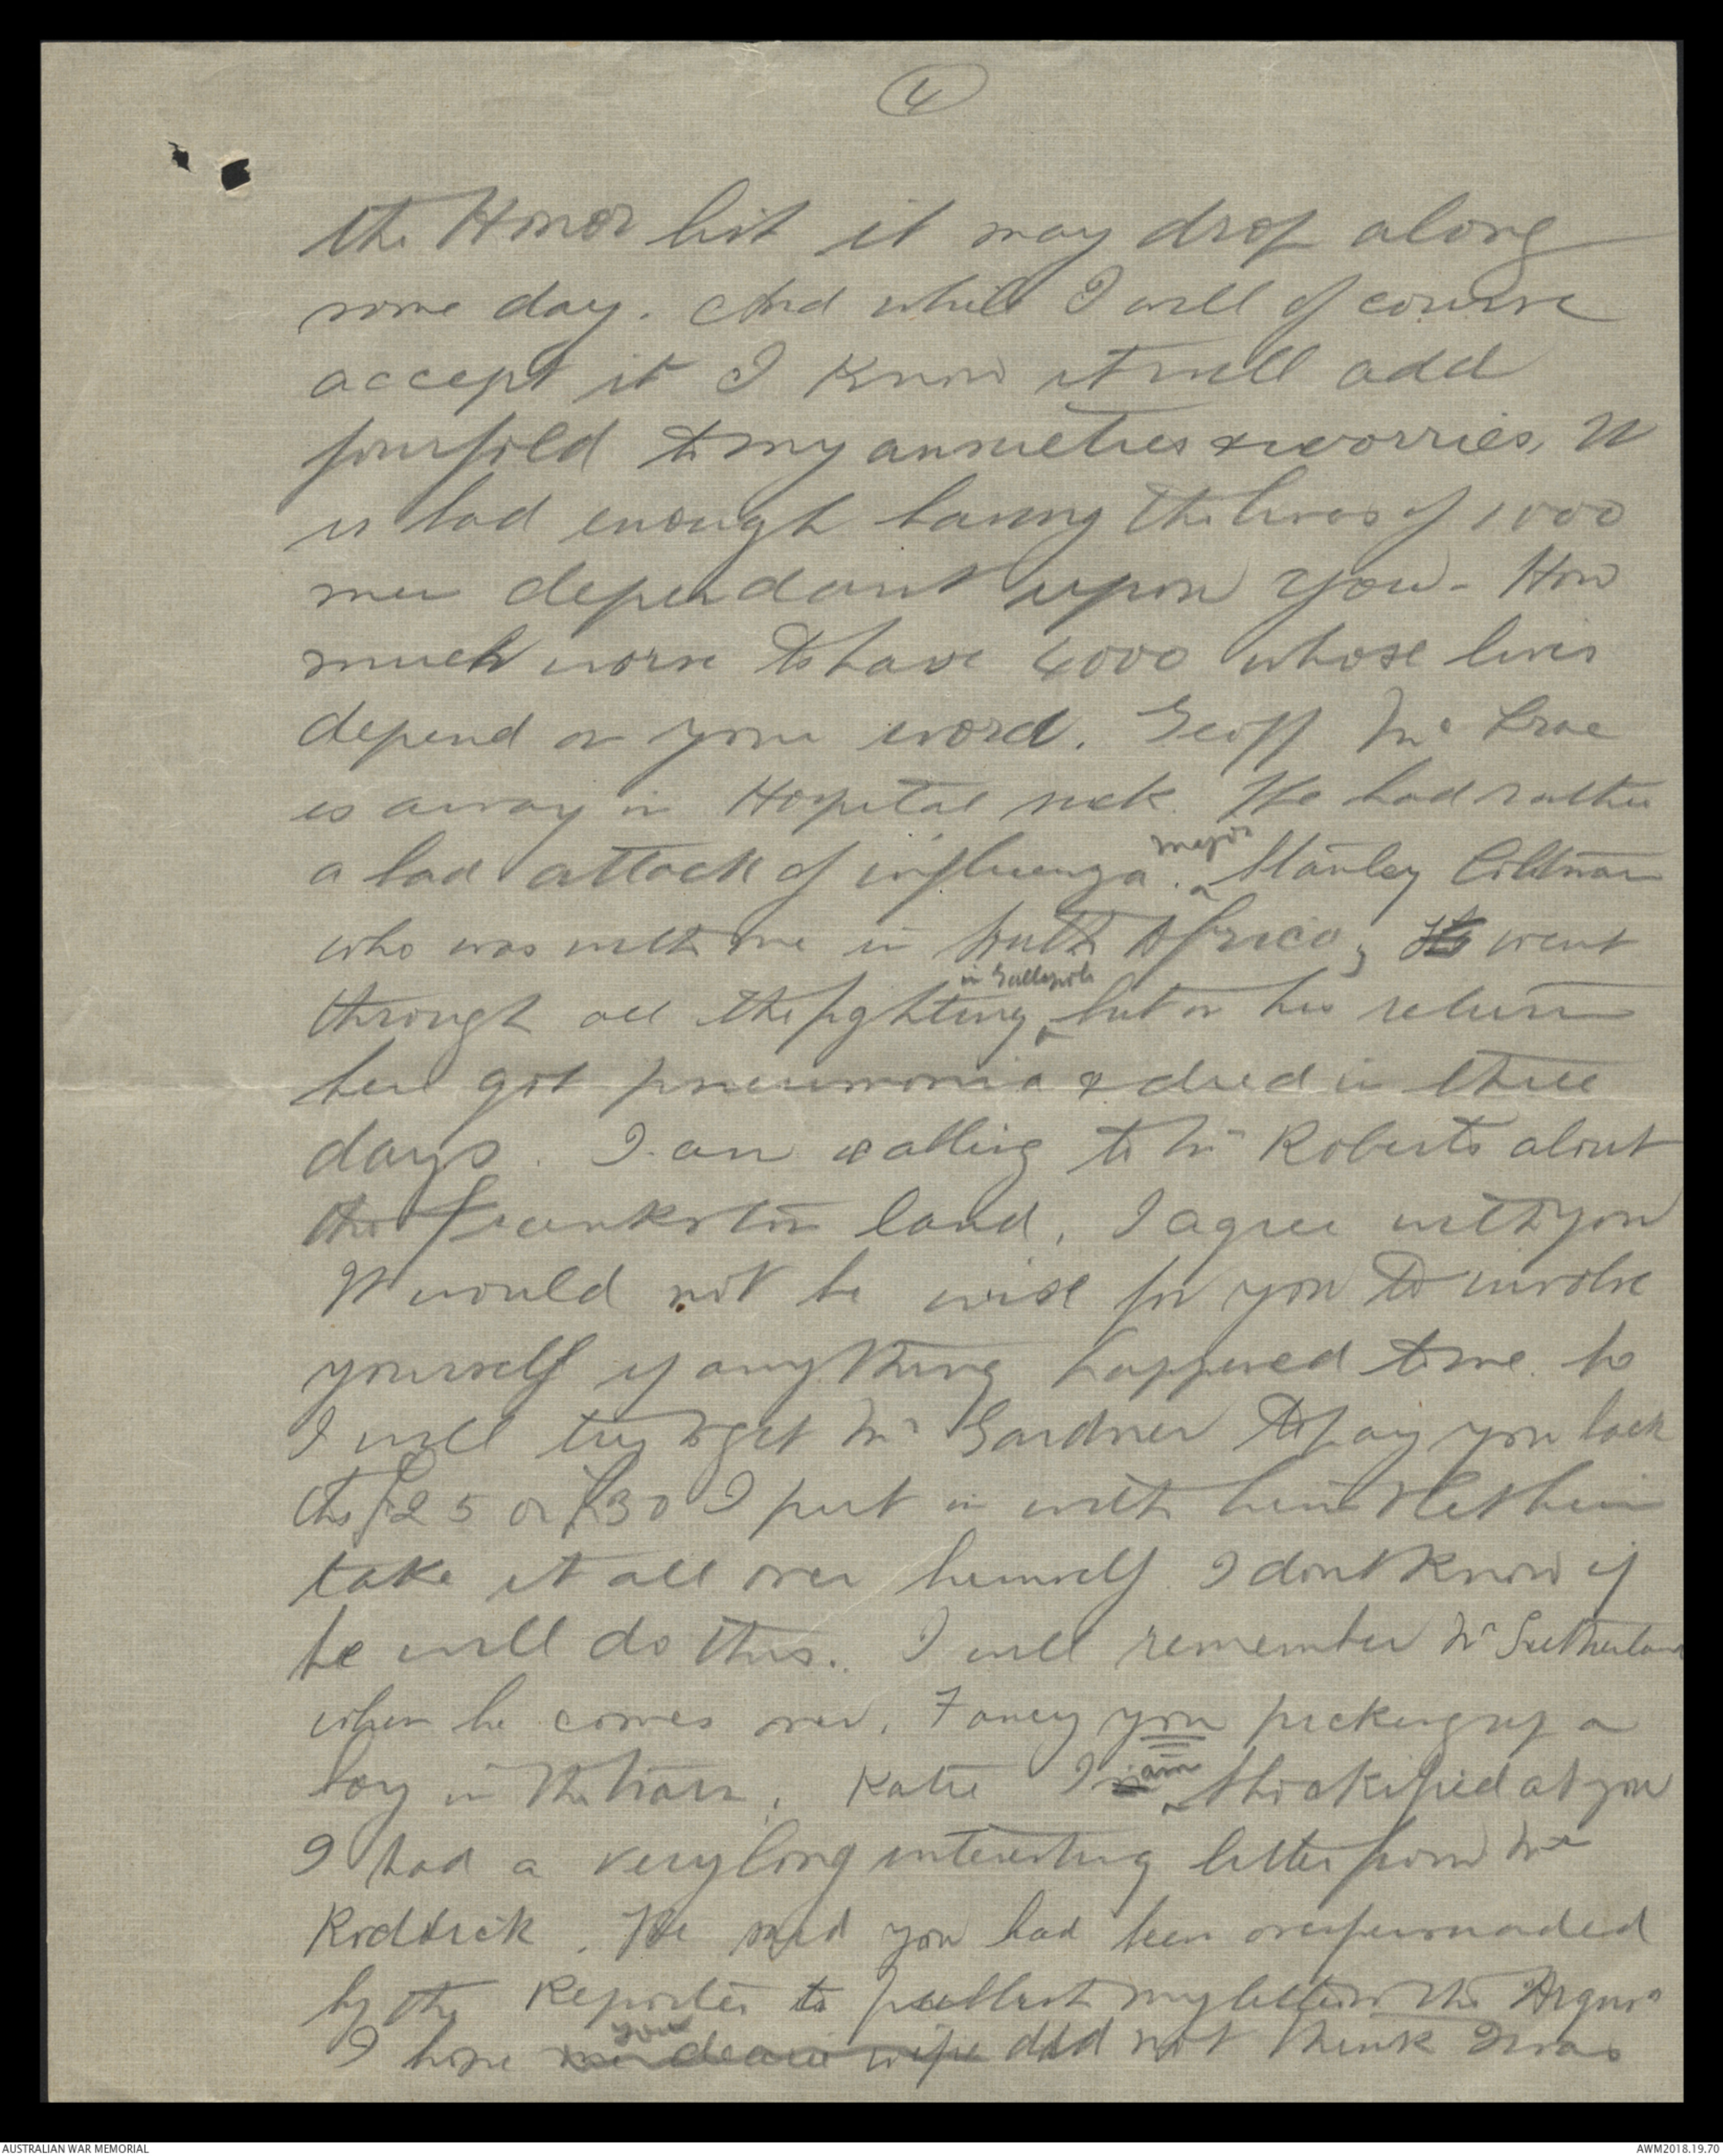 4
the Honor list it may drop along
some day. And while I will of course
accept it I know it will add
fourfold to my anxieties & worries. It
is bad enough having the lives of 1000
men dependant upon you - How
much worse to have 4000 whose lives
depend on your word. Geoff McCrae
is away in Hospital sick. He had rather
a bad attack of influenza. Major Stanley
who was with me in South Africa, went
through all the fighting in Gallipoli but on his return
here got pneumonia & died in three
days. I am to Mr Roberts about
the Frankston land. I agree with you
It would not be wise for you to involve
yourself if anything happened to me. So
I will try to get Mr Gardner to pay you back
the £25 or £30 I put in with him & let him
take it all over himself. I dont know if
he will do this. I will remember Mr Sutherland
when he comes over. Fancy you picking up a
boy in the train. Katie I am shockified at you
I had a very long interesting letter from Mr
Roddick. He said you had been overpersuaded
by the Reporter to publish my letter in the Argus
I hope you my dear wife did not think I was
AUSTRALIAN WAR MEMORIAL
AWM2018.19.70